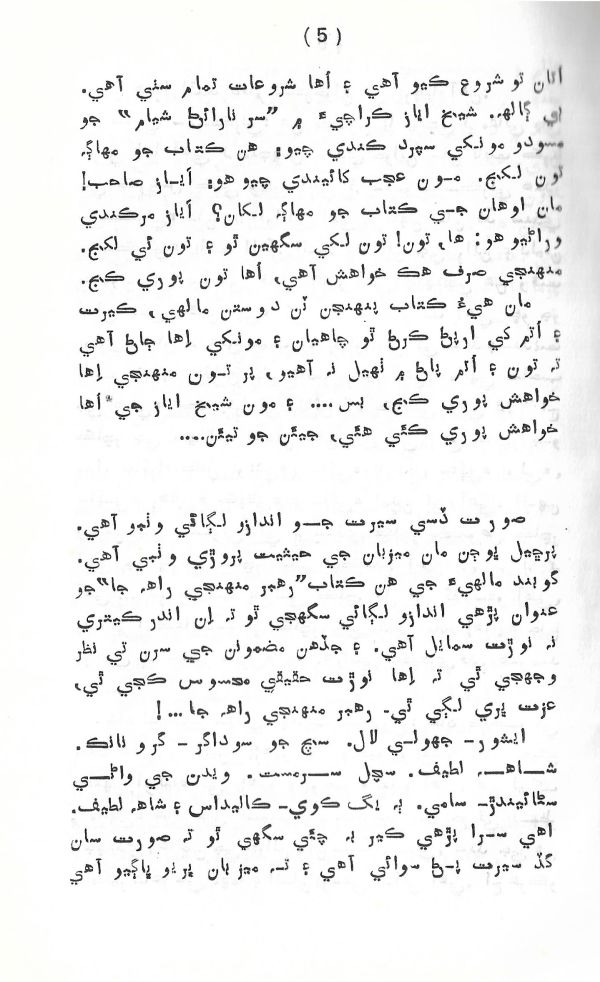 ( 5 )
اتان تو شروع ڪيو آهي ۽ اها شروعات تمام سٺي آهي.
اي ڳالهه. شيخ اياز ڪراچيءَ ۾ ”سر نارائڻ شيام“ جو
مسودو مونکي سپرد ڪندي چيو: هن ڪتاب جو مهاڳ
تون لکج. مون عجب کائيندي چيو هو: اياز صاحب!
مان اوهان جي ڪتاب جو مهاڳ لکان؟ اياز مرڪندي
ورائيو هو: ها، تون! تون لکي سگهين ٿو ۽ تون ئي لکج.
منهنجي صرف هڪ خواهش آهي، اها تون پوري ڪج.
مان هيءُ ڪتاب پنهنجن ٽن دوستن مالهي، ڪيرت
۽ اتم کي ارپڻ ڪرڻ ٿو چاهيان ۽ مونکي اها ڄاڻ آهي
تہ تون ۽ اتم پاڻ ۾ ٺهيل نہ آهيو، پر تون منهنجي اها
خواهش پوري ڪج، بس.... ۽ مون شيخ اياز جي اها
خواهش پوري ڪئي هئي، جيئن جو تيئن....
صورت ڏسي سيرت جو اندازو لڳائي وٺبو آهي.
پرچيل ڀوڄن مان ميزبان جي حيثيت پروڙي وٺبي آهي.
گوبند مالهيءَ جي هن ڪتاب ”رهبر منهنجي راهه جا“ جو
عنوان پڙهي اندازو لڳائي سگهجي ٿو تہ ان اندر ڪيتري
نہ نوڙت سمايل آهي. ۽ جڏهن مضمونن جي سرن تي نظر
وجهجي ٿي تہ اها نوڙت حقيقي محسوس ڪجي ٿي،
عزت ڀري لڳي ٿي- رهبر منهنجي راهه جا...!
ايشور- جهولي لال. سچ جو سوداگر- گرو نانڪ.
شاهه لطيف. سچل سرمست. ويدن جي واڻي
سڻائيندڙ- سامي. ٻہ يگ ڪوي- ڪاليداس ۽ شاهه لطيف.
اهي سرا پڙهي ڪير بہ چئي سگهي ٿو تہ صورت سان
گڏ سيرت پڻ سوائي آهي ۽ تہ ميزبان ڀريو ڀاڳيو آهي